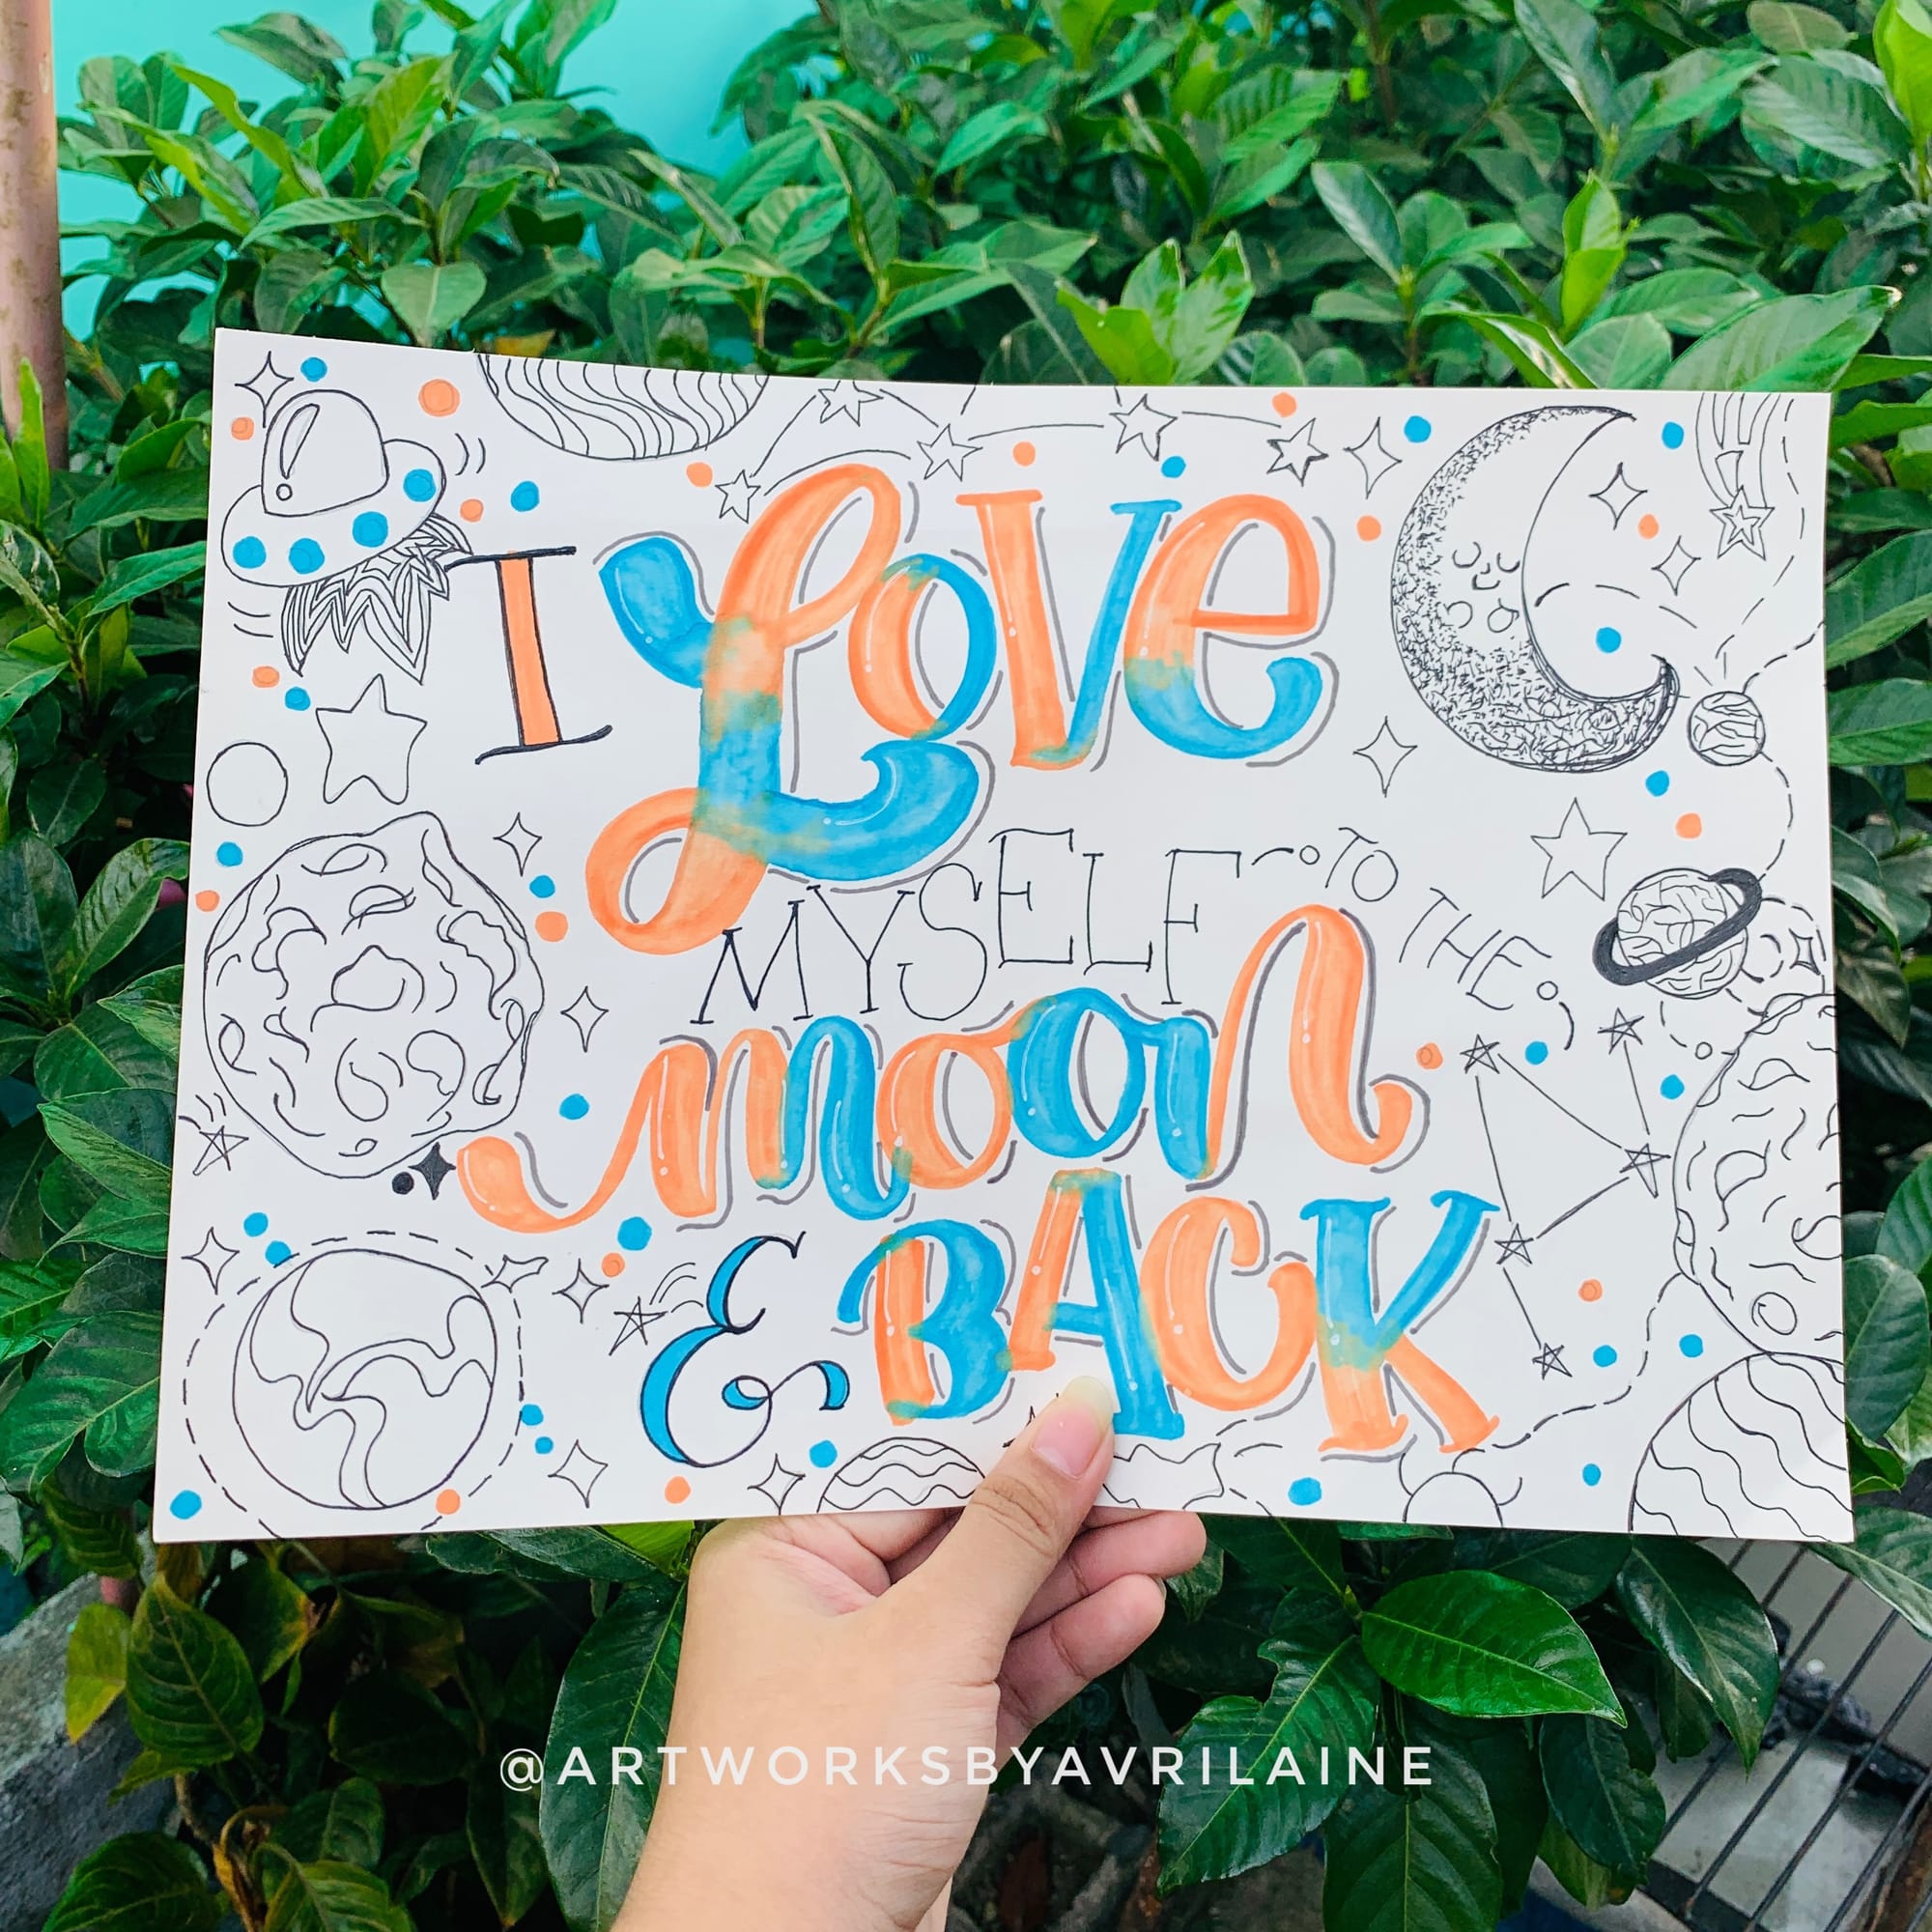 I Love
MYSELF TO THE
moon
& BACK
@ARTWORKSBYAVRILAINE